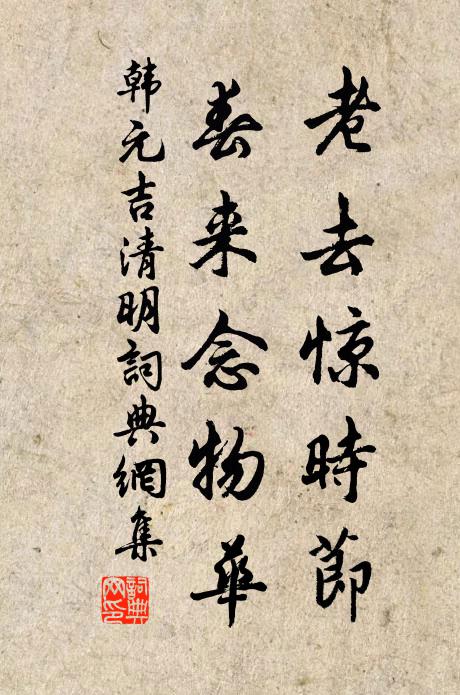 老去惊時節
春来念物華
韩元吉清明詞典網集
詞典网印